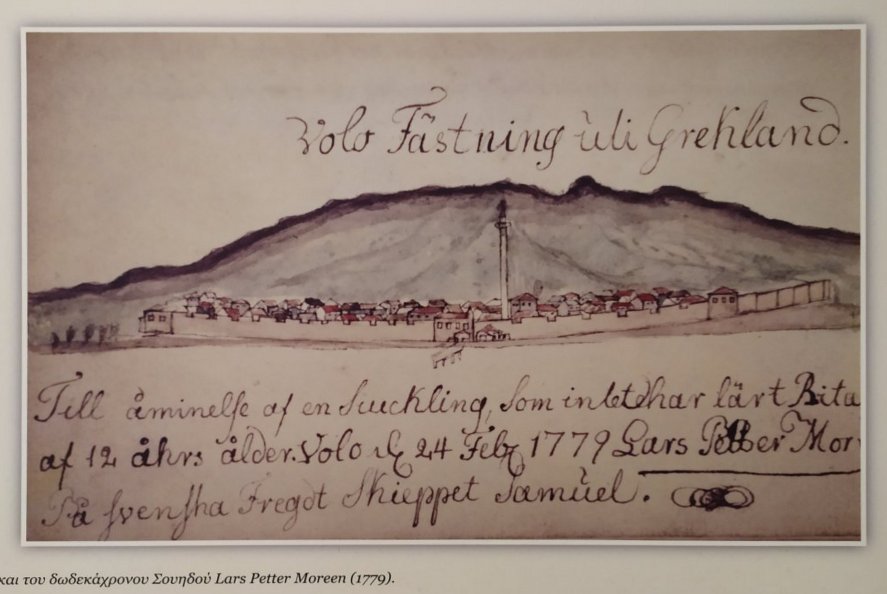 Volo Fästning ùti Grekland.
Till åminelse af en Suckling, som intet har lärt Rita
af 12 åhrs ålder. Volo d. 24 Feb. 1779 Lars Petter Mor
På svenska Fregdt Skieppet Samùel.
και του δωδεκάχρονου Σουηδού Lars Petter Moreen (1779).